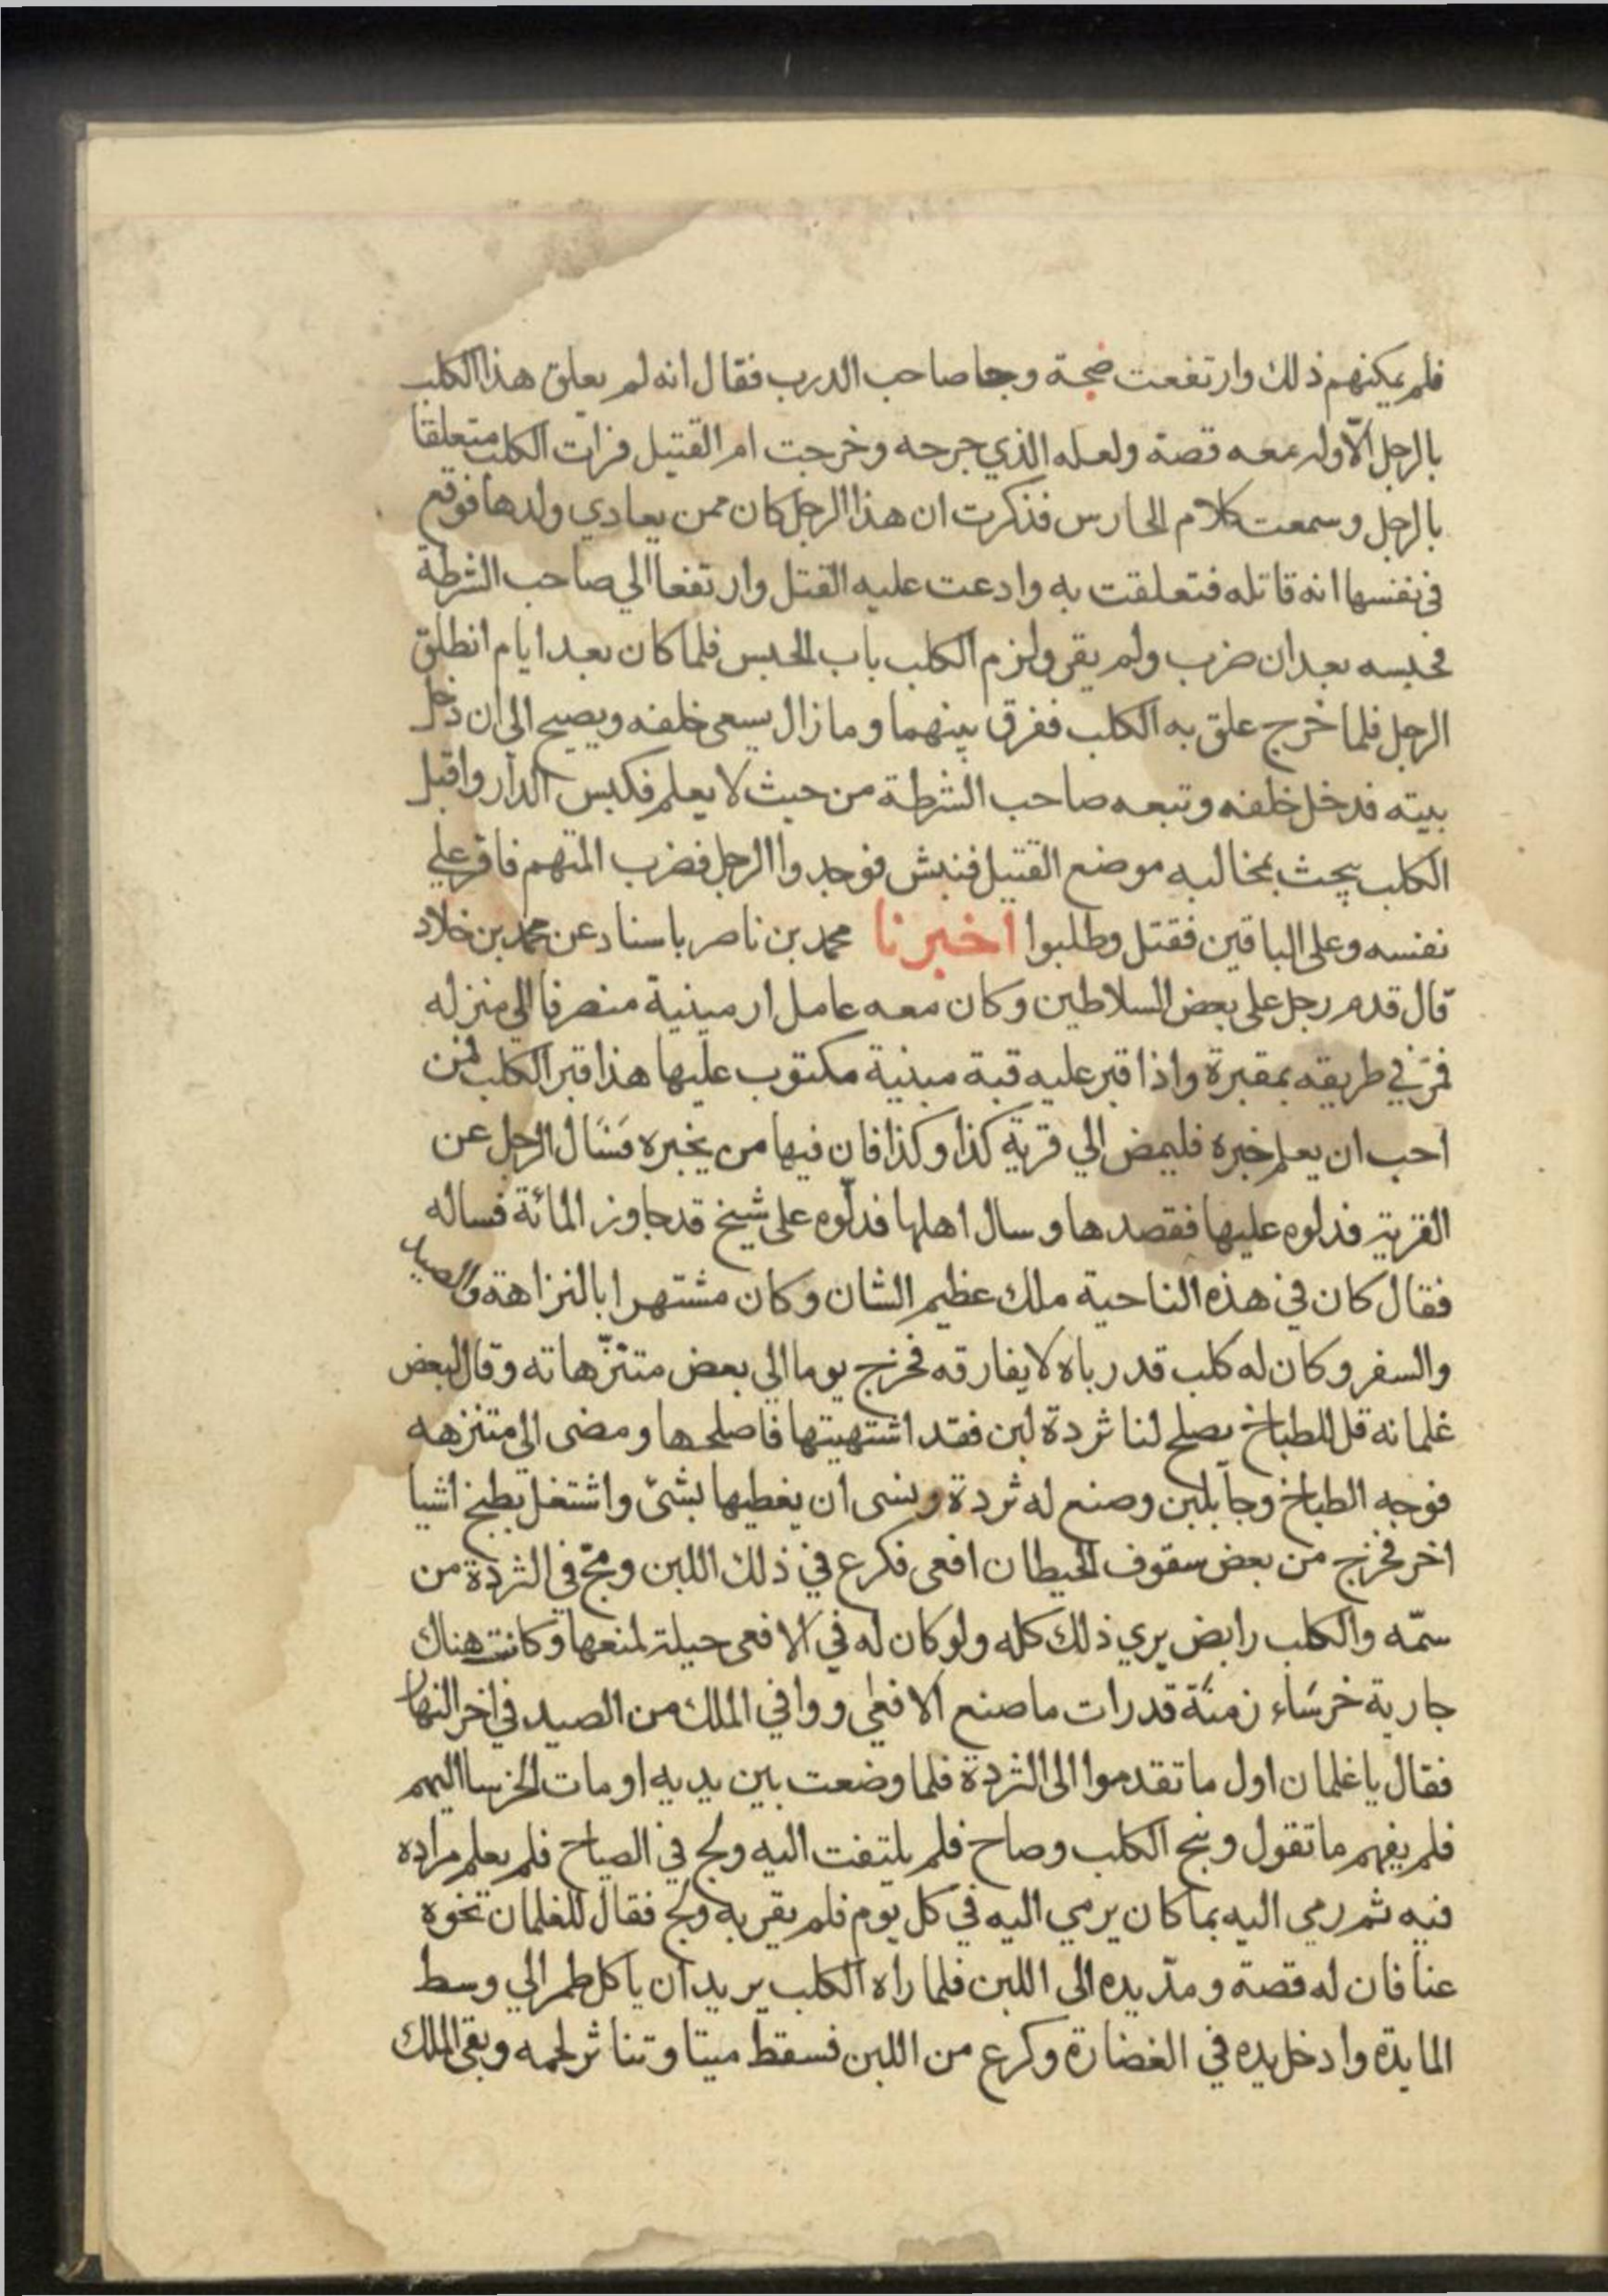 فلم يمكنهم ذلك وارتفعت ضجة وجا صاحب الدرب فقال انه لم يعلق هذا الكلب
بالرجل الا وله معه قصة ولعله الذي جرحه وخرجت ام القتيل فرات الكلب متعلقا
بالرجل وسمعت كلام الحارس فذكرت ان هذا الرجل كان ممن يعادي ولدها فوقع
في نفسها انه قاتله فتعلقت به وادعت عليه القتل وارتفعا الي صاحب الشرطة
فحبسه بعد ان ضرب ولم يقر ولزم الكلب باب الحبس فلما كان بعد ايام انطلق
الرجل فلما خرج علق به الكلب ففرق بينهما وما زال يسعى خلفه ويصيح الى ان دخل
بيته فدخل خلفه وتبعه صاحب الشرطة من حيث لا يعلم فكبس الدار واقبل
الكلب يبحث بمخالبه موضع القتيل فنبش فوجدوا الرجل فضرب المتهم فاقر علي
نفسه وعلى الباقين فقتل وطلبوا اخبرنا محمد بن ناصر باسناد عن محمد بن خلاد
قال قدم رجل على بعض السلاطين وكان معه عامل ارمينية منصرفا الي منزله
فمر في طريقه بمقبرة واذا قبر عليه قبة مبنية مكتوب عليها هذا قبر الكلب فمن
احب ان يعلم خبره فليمض الي قرية كذا وكذا فان فيها من يخبره فسال الرجل عن
القرية فدلوه عليها فقصدها وسال اهلها فدلوه على شيخ قد جاوز المائة فساله
فقال كان في هذه الناحية ملك عظيم الشان وكان مشتهرا بالنزاهة والصيد
والسفر وكان له كلب قد رباه لا يفارقه فخرج يوما الي بعض متنزهاته وقال لبعض
غلمانه قل للطباخ يصلح لنا ثردة لبن فقد اشتهيتها فاصلحها ومضى الى متنزهه
فوجه الطباخ وجآ بلبن وصنع له ثردة ونسى ان يغطيها بشئ واشتغل بطبخ اشيا
اخر فخرج من بعض سقوف الحيطان افعى فكرع في ذلك اللبن ومج في الثردة من
سمّه والكلب رابض يري ذلك كله ولو كان له في الافعى حيلة لمنعها وكانت هناك
جارية خرسَاء زمنَة قد رات ما صنع الافعى ووافي الملك من الصيد في اخر النهار
فقال يا غلمان اول ما تقدموا الى الثردة فلما وضعت بين يديه اومات الخرسا اليهم
فلم يفهم ما تقول ونبح الكلب وصاح فلم يلتفت اليه ولج في الصياح فلم يعلم مراده
فيه ثم رمي اليه بما كان يرمي اليه في كل يوم فلم يقربه ولج فقال للغلمان نحوه
عنا فان له قصة ومدّ يده الى اللبن فلما راه الكلب يريد ان ياكل طمر الي وسط
المايدة وادخل يده في الغضارة وكرع من اللبن فسقط ميتا وتناثر لحمه وبقي الملك